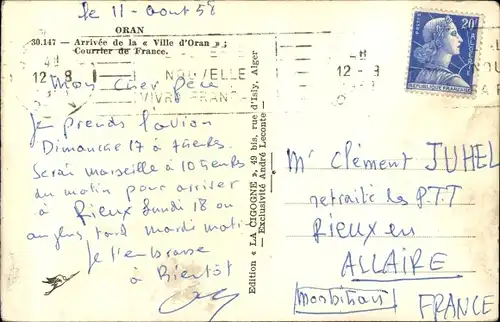 le 11 - août 58
ORAN
30.147 - Arrivée de la « Ville d'Oran » ;
Courrier de France.
Mon cher père
Je prends l'avion
Dimanche 17 à
Serai Marseille à 10 heures
du matin pour arriver
à Rieux lundi 18 ou
au plus tard mardi matin
Je t'embrasse
à Bientôt
Edition « LA CIGOGNE », 49 bis, rue d'Isly, Alger
- Exclusivité André Leconte -
12 - 8
NOUVELLE
VIVRE FRANC
12 - 8
20F
ALGERIE
REPUBLIQUE FRANÇAISE
Mr Clément JUHEL
retraité les P.T.T
RIEUX en
ALLAIRE
(Morbihan)
FRANCE